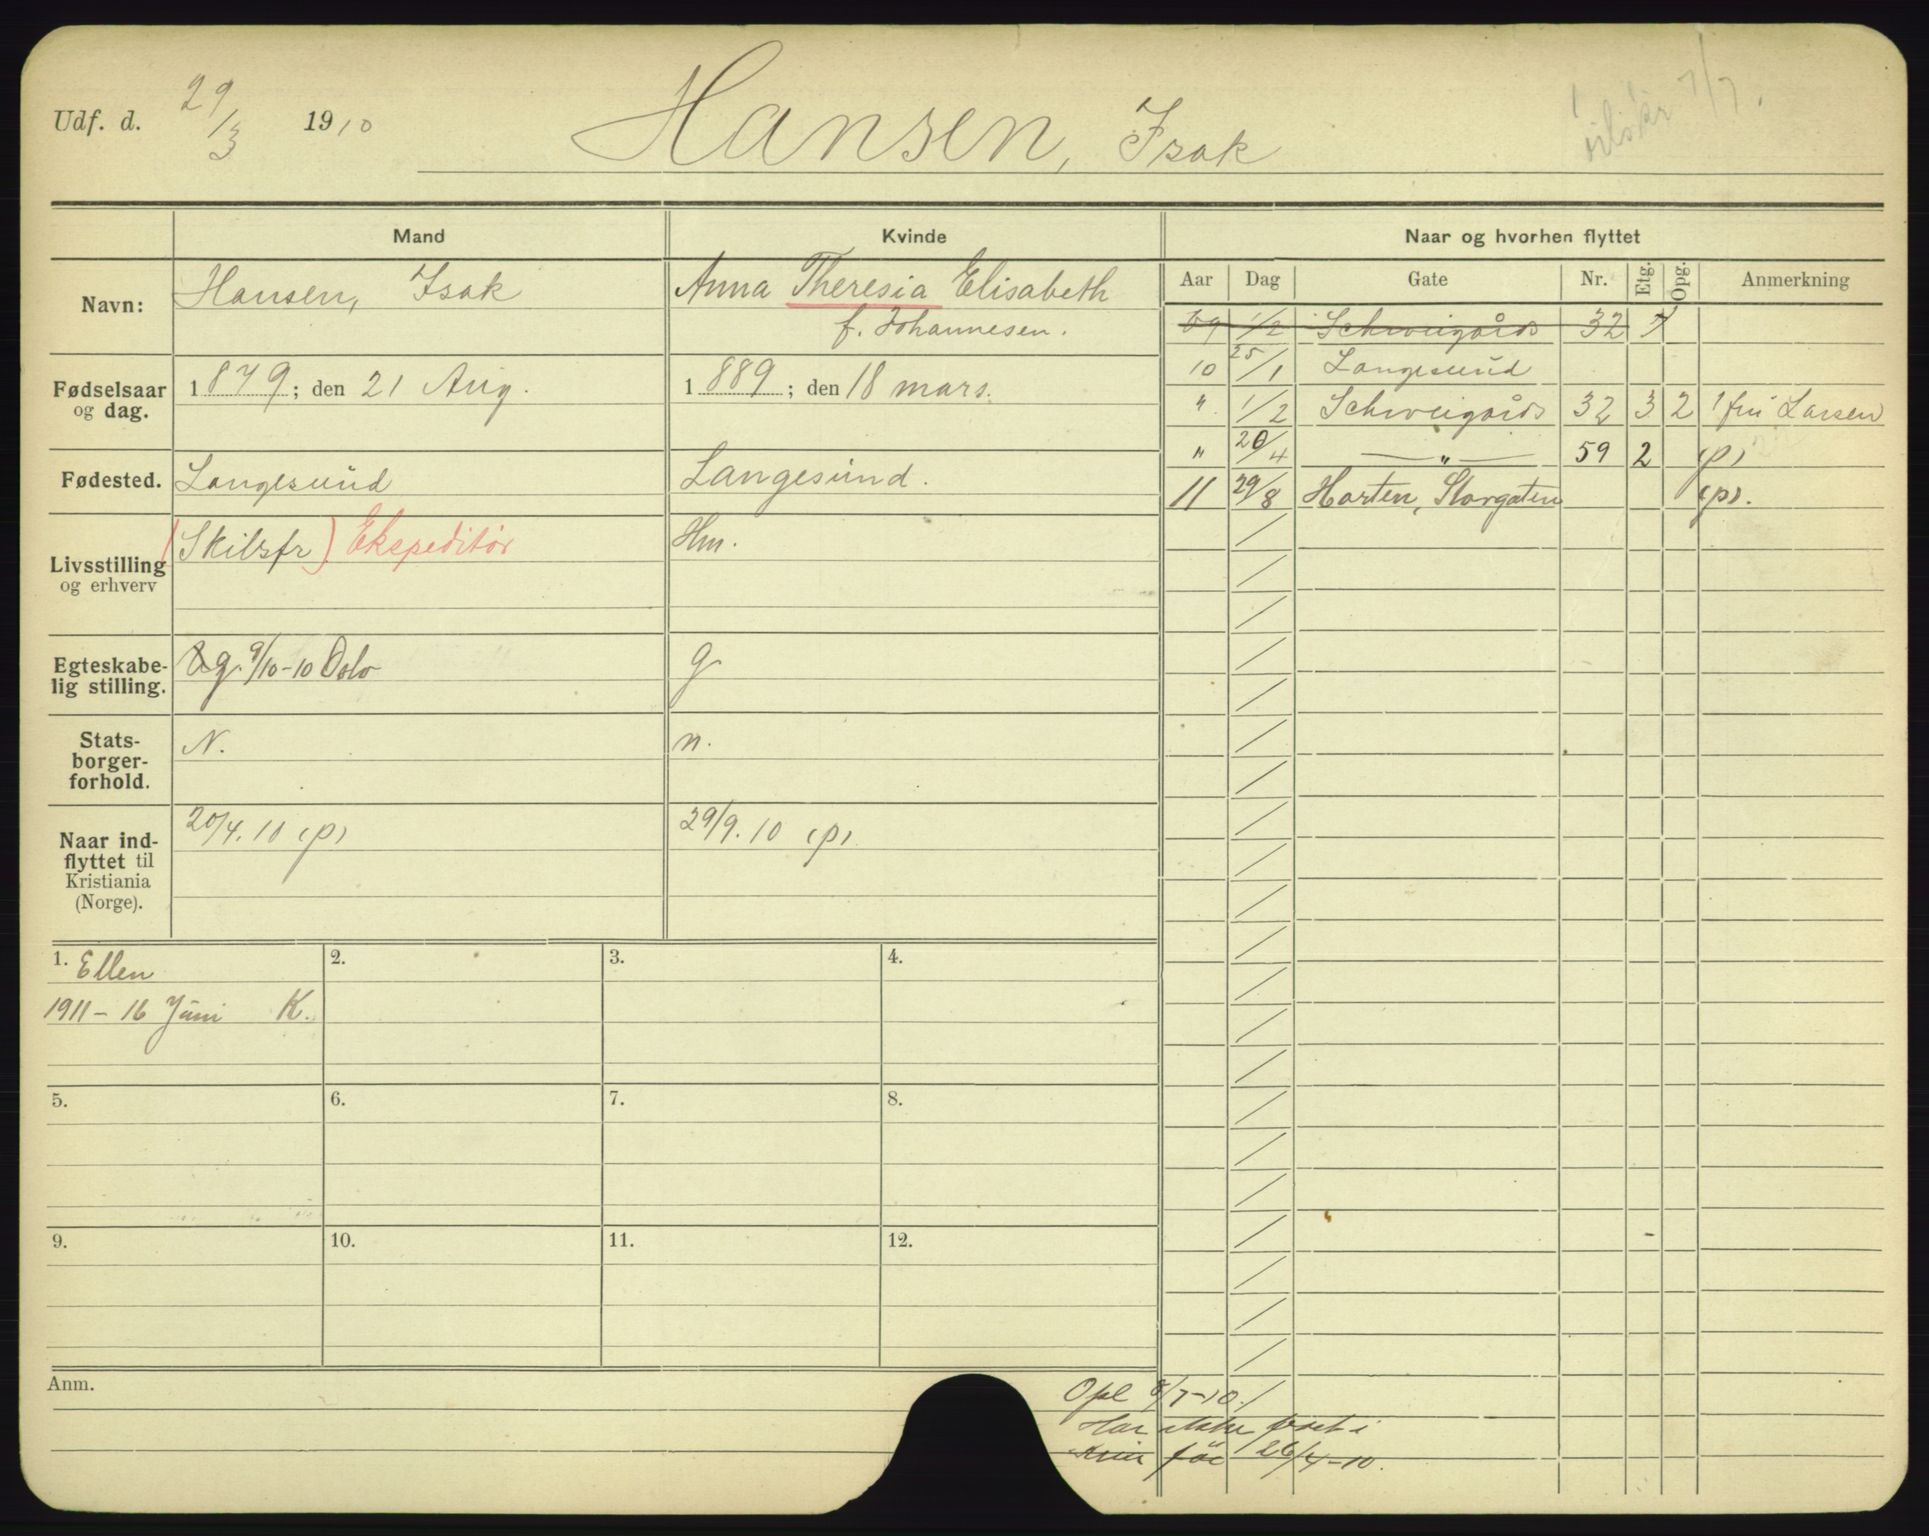 Udf. d. 29/3 1910 Hansen, Isak
7/7.
Mand Kvinde Naar og hvorhen flyttet
Navn: Hansen, Isak Anna Theresia Elisabeth
f. Johannesen.
Aar Dag Gate Nr. Etg. Opg. Anmerkning
09 1/2 Schweigårds 32
10 25/1 Langesund
" 1/2 Schweigårds 32 3 2 Larsen
" 20/4 — " — 59 2 (p)
11 29/8 Horten, Storgaten (p).
Fødselsaar og dag. 1879; den 21 Aug. 1889; den 18 mars.
Fødested. Langesund Langesund.
Livsstilling og erhverv (Skibsfr) Ekspeditør Hm.
Egteskabe-
lig stilling. g. 9/10-10 Oslo g
Stats-
borger-
forhold. N. n.
Naar ind-
flyttet til
Kristiania
(Norge). 20/4.10 (p) 29/9.10 (p)
1. Ellen 2. 3. 4.
1911 – 16 Juni K.
5. 6. 7. 8.
9. 10. 11. 12.
Anm.
Opl 8/7-10.
Har ikke boet i
Kria før 26/4-10.